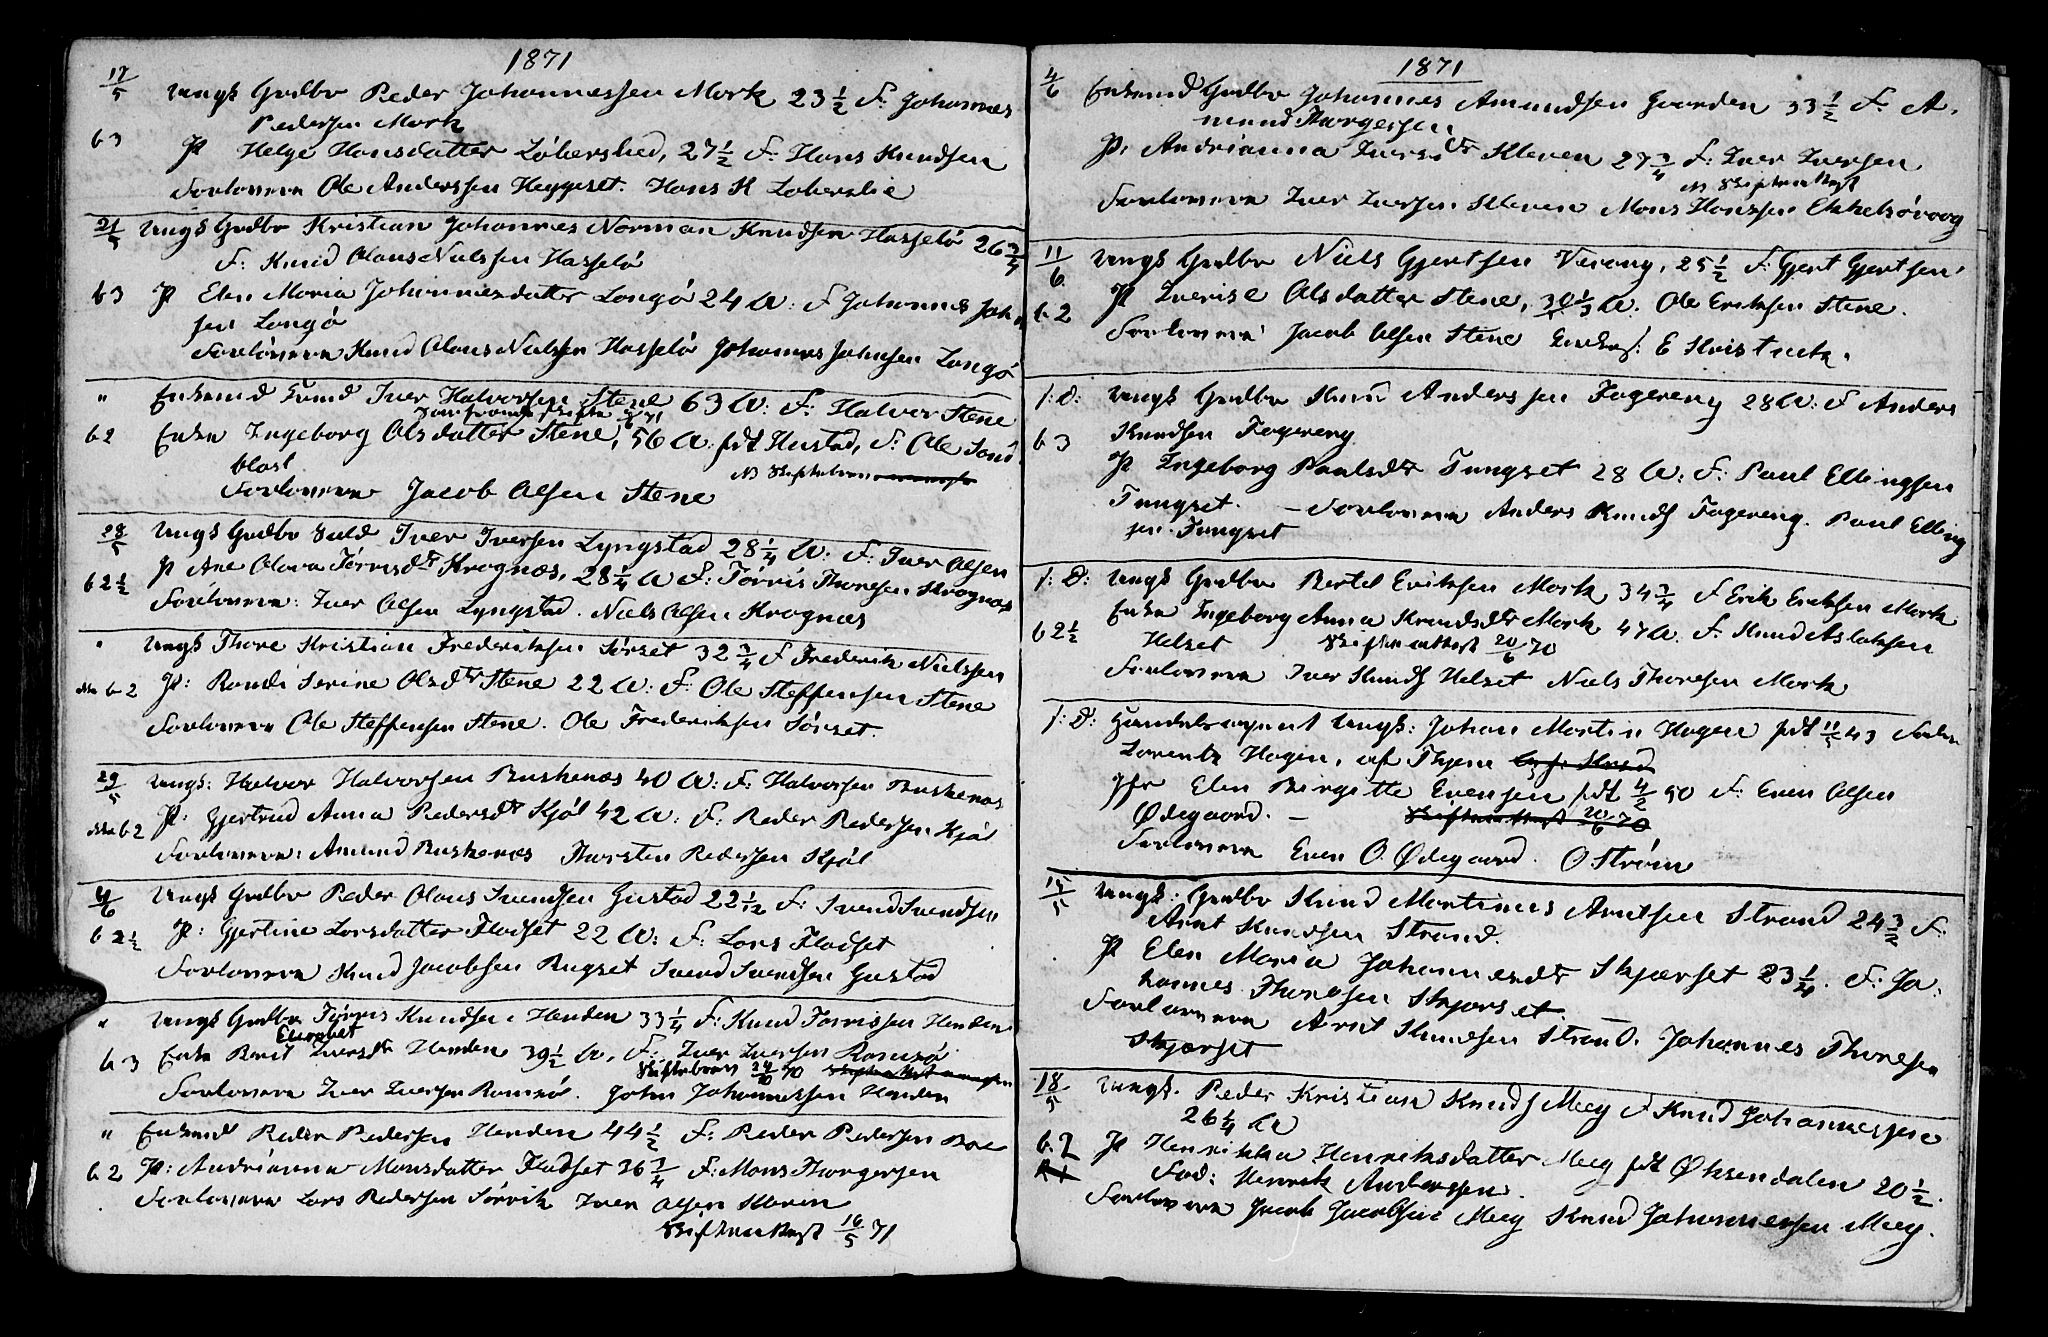 1871
17/5 Ungk Grdbr Peder Johannessen Mork 23 1/2 F: Johannes
Pedersen Mork
b 3 P Helge Hansdatter Løberslied, 27 1/2 F: Hans Knudsen
Forlovere Ole Anderssen Heggeset. Hans K Løberslie
21/5 Ungk Grdbr Kristian Johannes Norman Knudsen Hasselø 26 3/4
F: Knud Olaus Nielsen Hasselø
b 3 P Elen Maria Johannesdatter Longø 24 A: F Johannes John
sen Longø
Forlovere Knud Olaus Nielsen Hasselø Johannes Johnsen Longø
" Enkemd Iver Halvorsen Stene 63 A: F: Halvor Stene
b 2 Enke Ingeborg Olsdatter Stene, 56 A. fdt Hustad, F: Ole
Forlovere Jacob Olsen Stene
28/5 Ungk Grdbr Iver Iversen Lyngstad 28 1/4 A: F: Iver Olsen
P Ane Olava Tørrisdtr Krognæs, 28 1/4 A F: Tørris Thoresen Krognæs
b 2 1/2 Forlovere: Iver Olsen Lyngstad. Niels Olsen Krognæs
" Ungk Thore Kristian Frederiksen Sørset 32 3/4 F Frederik Nielssen
b 2 P: Randi Serine Olsdtr Stene 22 A: F: Ole Steffensen Stene
Forlovere Ole Steffensen Stene. Ole Frederiksen Sørset.
29/5 Ungk: Halvor Halvorsen Buskenæs 40 A: F: Halvorsen Buskenæs
b 2 P: Gjertrud Anna Pedersdtr Kjøl 42 A: F: Peder Pedersen Kjøl
Forlovere: Amund Buskenæs Thorsten Pedersen Kjøl
4/6 Ungk Grdbr Peder Olaus Svendsen Gustad 22 1/12 F: Svend Svendsen
b 2 1/2 P: Gjertine Larsdatter Fladset 22 A: F: Lars Fladset
Forlovere Knud Jacobsen Rugset Svend Svendsen Gustad
" Ungk Grdbr Tørris Knudsen Henden 33 1/4 F: Knud Tørrissen Henden
Elisabet
b 3 Enke Berit Iversdtr Henden 39 1/2 A, F: Iver Iversen Romsø
Skiftebrev 24/10 70
Forlovere Iver Iversen Romsø. John Johannessen Henden
" Enkemd Peder Pedersen Henden 44 1/2 F: Peder Pedersen Boe
b 2 P: Andrianna Monsdatter Fladset 36 3/4 F: Mons Thorgersen
Forlovere Lars Pedersen Sørvik Iver Olsen Kleven
Skifteattest 16/5 71
1871
4/6 Enkemd Grdbr Johannes Amundsen Gaarden 33 1/2 F: A-
mund Thorgersen
P: Andrianna Iversdtr Kleven 27 3/4 F: Iver Iversen
NB Skifteattest
Forlovere Iver Iversen Kleven Mons Hanssen Ekkelsøvaag
11/6 Ungk Grdbr Niels Gjertsen Vevang, 25 1/2 F: Gjert Gjertsen
b 2 P Iverise Olsdatter Stene, 30 1/3 A: Ole Eriksen Stene.
Forlovere: Jacob Olsen Stene E Kristvik.
s: D: Ungk Grdbr Knud Anderssen Fagereng 28 A: F Anders
b 3 Knudsen Fagereng
P Ingeborg Paulsdtr Tungset 28 A: F: Paul Ellingsen
Tungset. — Forlovere Anders Knuds Fagereng. Paul Elling
sen Tungset
s: D: Ungk Grdbr Bertel Eriksen Mork 34 3/4 F Erik Eriksen Mork
b 2 1/2 Enke Ingeborg Anna Knudsdtr Mork 47 A. F: Knud Aslaksen
Helset Skifteattest 20/6 70
Forlovere Iver Knuds Helset Niels Thoresen Mork
s: D: Handelsagent Ungk: Johan Martin Hagen fdt 11/5 43 Fader
Lorentz Hagen, af Thjem
Pge Elen Birgitte Evensen fdt 4/2 50 F: Even Olsen
Ødegaard. — Skifteattest 20/6 70
Forlovere Even O. Ødegaard. O Strøm
15/5 Ungk: Grdbr Knud Martinus Arntsen Strand 24 3/2 F:
Arnt Knudsen Strand.
P Elen Maria Johannesdtr Skjærset 23 1/4. F: Jo-
hannes Thoresen Skjærset.
Forlovere Arnt Knudsen Strand. Johannes Thoresen
Skjærset
18/5 Ungk. Peder Kristian Knuds Meeg F Knud Johannessen
26 1/4 A
b. 2 P Henrikka Henriksdatter Meeg fdt Øksendalen 20 1/2.
Fad: Henrik Anderssen.
Forlovere Jacob Jacobsen Meeg Knud Johannessen Meeg.